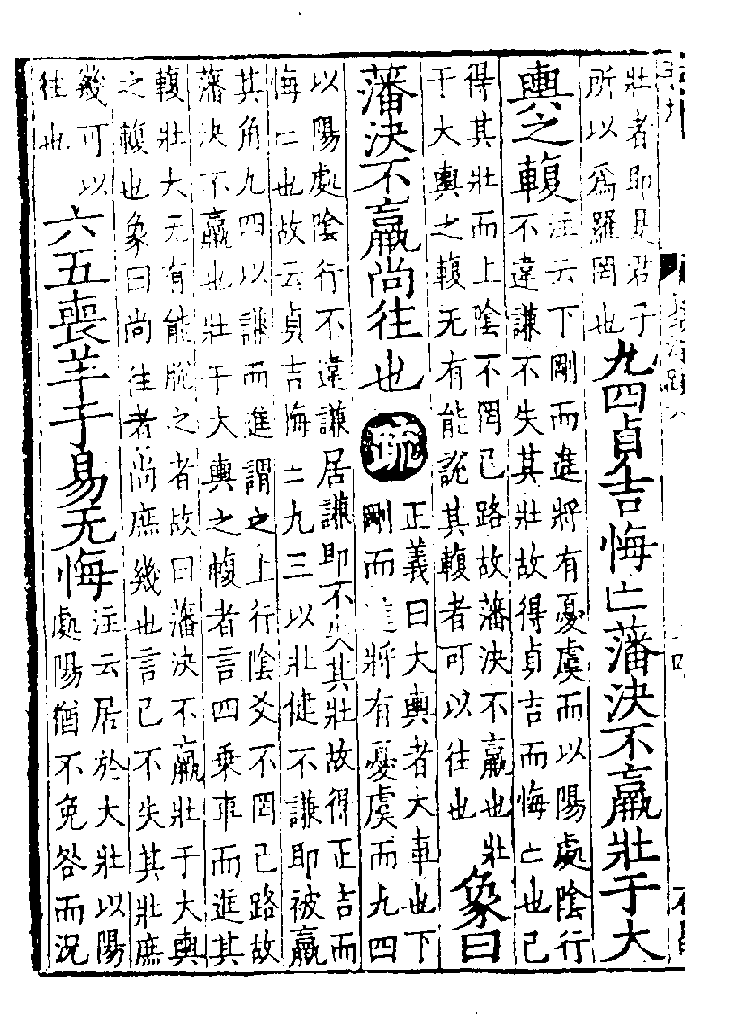 壯者即是君子
所以爲羅罔也
九四貞吉悔亡藩決不羸壯于大
輿之輹
注云下剛而進將有憂虞而以陽處陰行
不違謙不失其壯故得貞吉而悔亡也已
得其壯而上陰不罔已路故藩決不羸也壯
于大輿之輹无有能說其輹者可以往也
象曰
藩決不羸尚往也
疏
正義曰大輿者大車也下
剛而進將有憂虞而九四
以陽處陰行不違謙居謙即不失其壯故得正吉而
悔亡也故云貞吉悔亡九三以壯健不謙即被羸
其角九四以謙而進謂之上行陰爻不罔已路故
藩決不羸也壯于大輿之輹者言四乘車而進其
輹壯大无有能脫之者故曰藩決不羸壯于大輿
之輹也象曰尚往者尚庶幾也言已不失其壯庶
幾可以
往也
六五喪羊于易无悔
注云居於大壯以陽
處陽猶不免咎而況